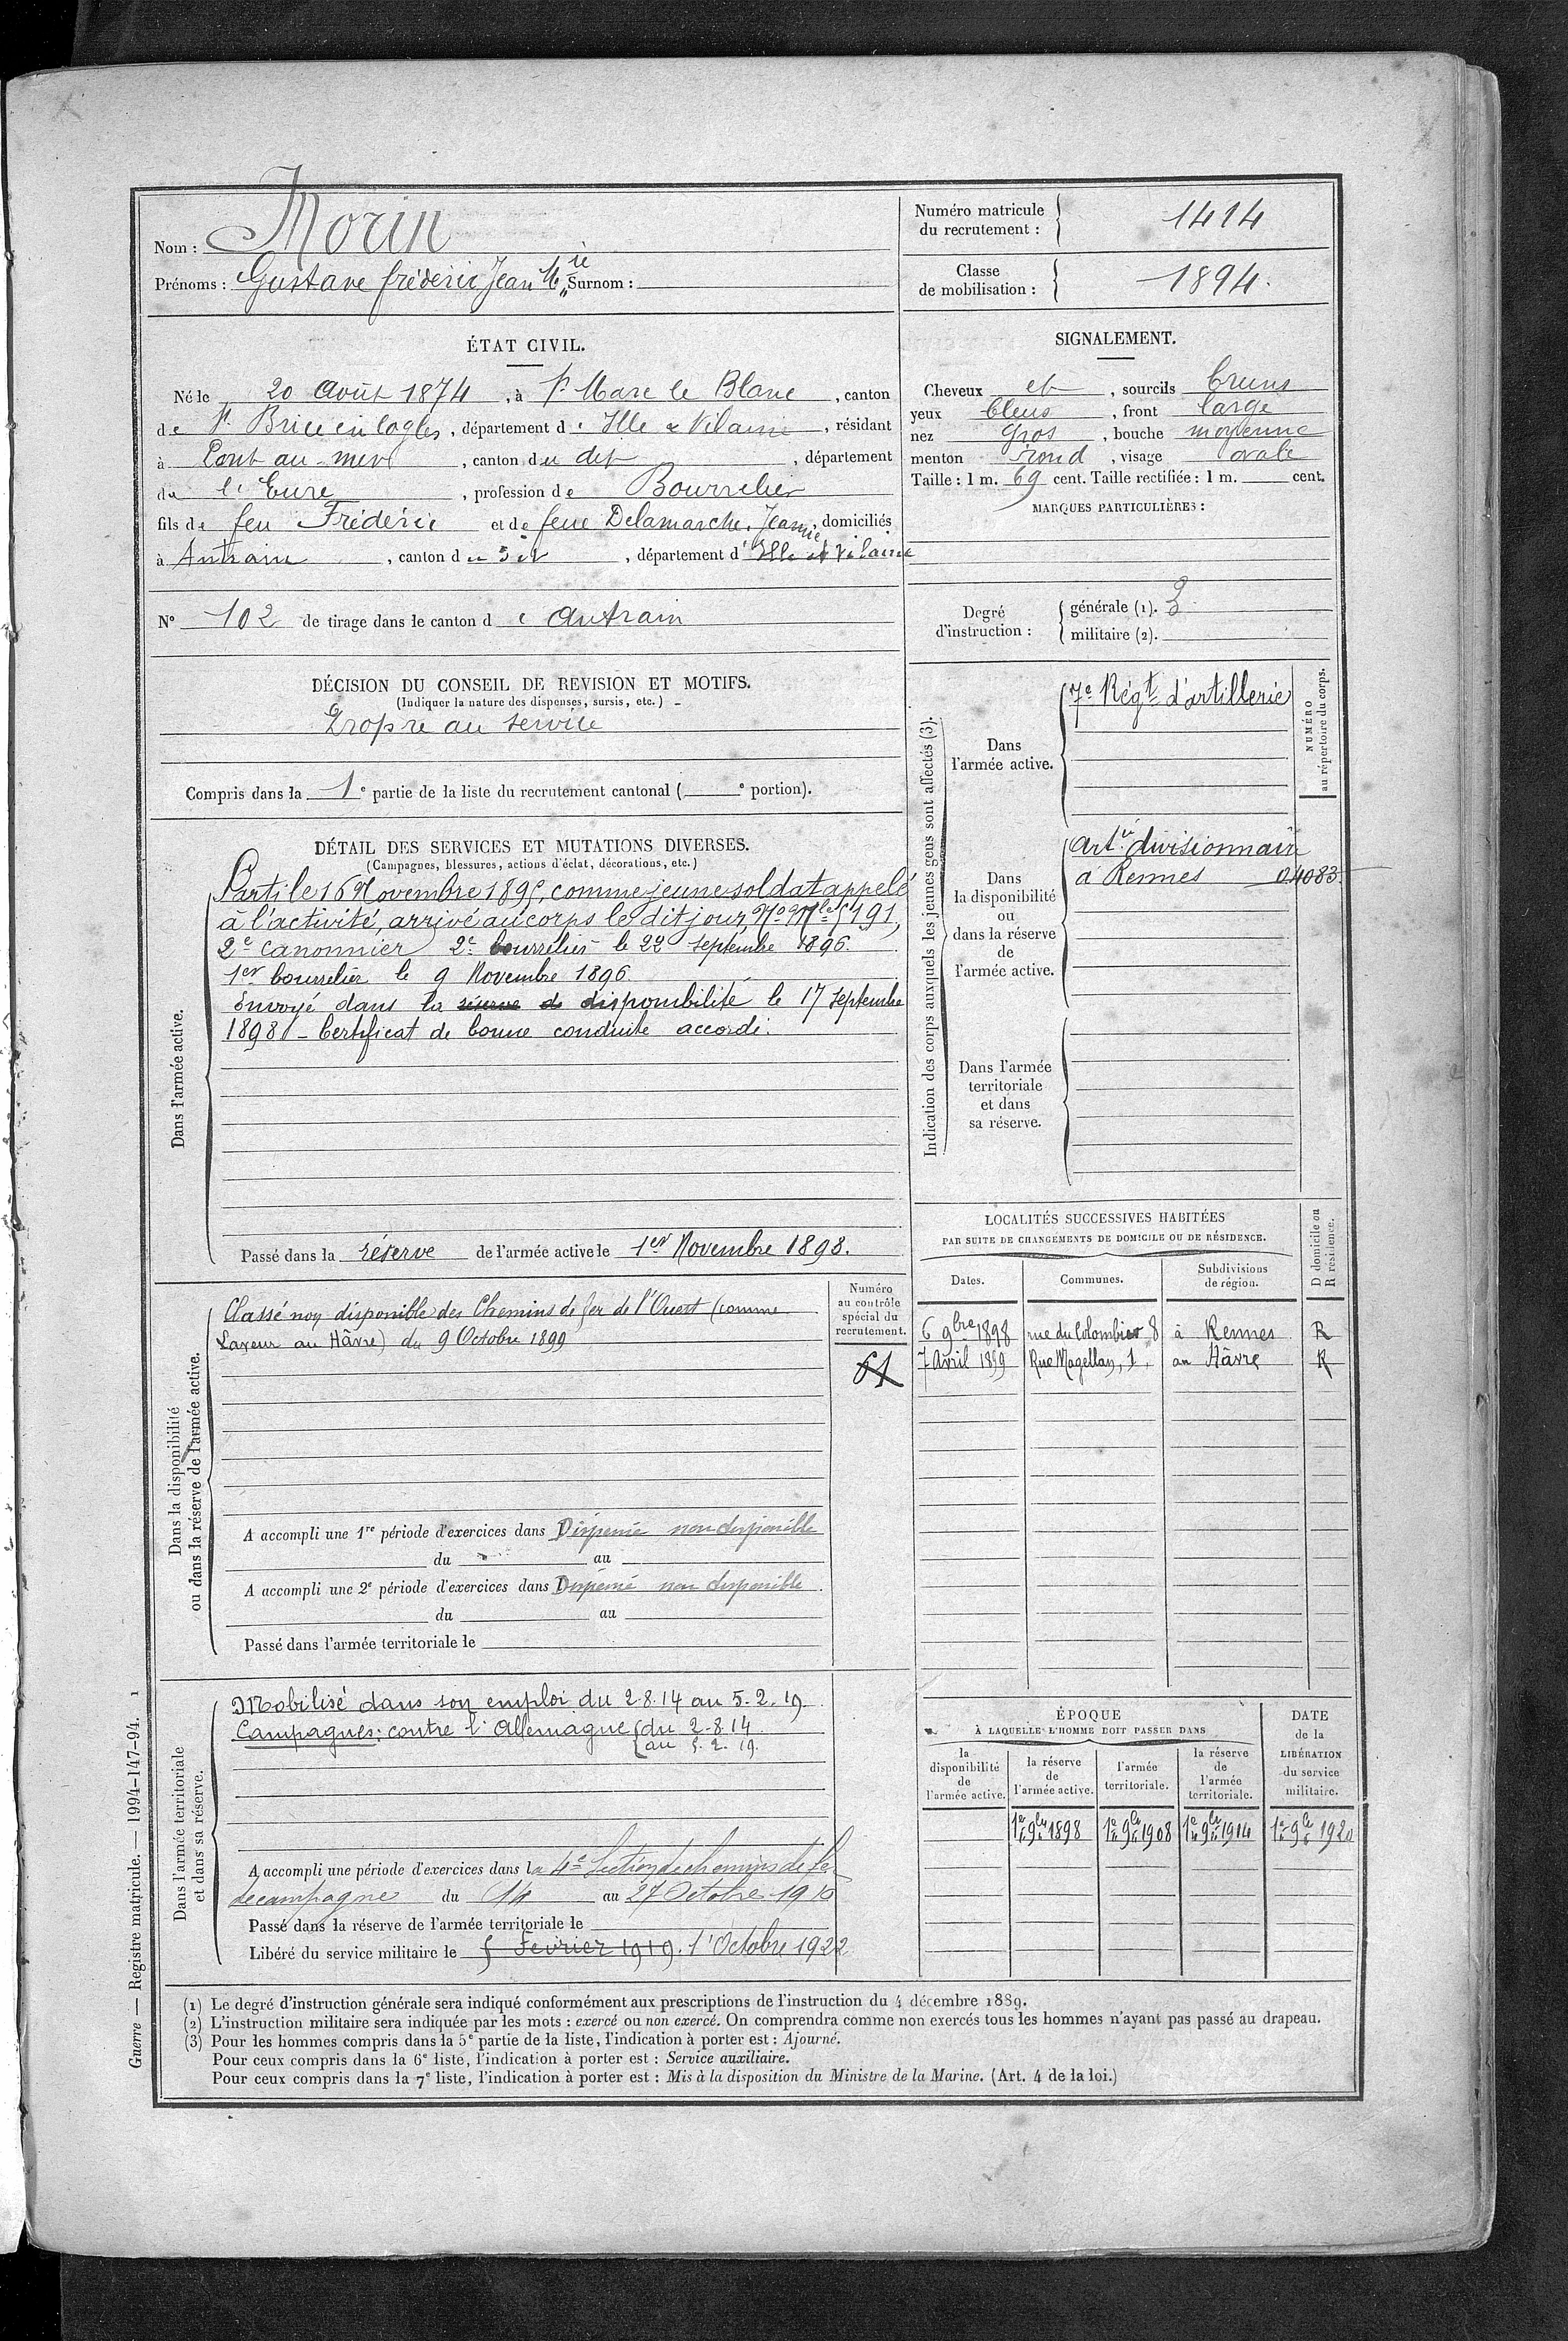 Nom : Morin
Prénoms : Gustave frédéric Jean Mie Surnom :
Numéro matricule du recrutement : 1414
Classe de mobilisation : 1894.
ÉTAT CIVIL.
Né le 20 Août 1874, à St Marc le Blanc, canton
de St Brice en Cogles, département d'Ille & Vilaine, résidant
à Pont au-mer, canton du dit, département
de l'Eure, profession de Bourrelier
fils de feu Frédéric et de feue Delamarche, Jeanne, domiciliés
à Antrain, canton du dit, département d'Ille et Vilaine
N° 102 de tirage dans le canton de Antrain
SIGNALEMENT.
Cheveux et, sourcils bruns
yeux bleus, front large
nez gros, bouche moyenne
menton rond, visage ovale
Taille : 1 m. 69 cent. Taille rectifiée : 1 m. cent.
MARQUES PARTICULIÈRES :
Degré d'instruction :
générale (1). 3
militaire (2).
DÉCISION DU CONSEIL DE REVISION ET MOTIFS.
(Indiquer la nature des dispenses, sursis, etc.)
Propre au service
Compris dans la 1e partie de la liste du recrutement cantonal ( e portion).
Indication des corps auxquels les jeunes gens sont affectés (3).
NUMÉRO au répertoire du corps.
Dans l'armée active.
7e Régt d'artillerie
Dans la disponibilité ou dans la réserve de l'armée active.
Artie divisionnaire
à Rennes 04083
Dans l'armée territoriale et dans sa réserve.
DÉTAIL DES SERVICES ET MUTATIONS DIVERSES.
(Campagnes, blessures, actions d'éclat, décorations, etc.)
Dans l'armée active.
Parti le 16 Novembre 1895, comme jeune soldat appelé
à l'activité, arrivé au corps le dit jour, No Mle 5191,
2e canonnier 2e bourrelier le 22 septembre 1896.
1er bourrelier le 9 Novembre 1896.
Envoyé dans la réserve de disponibilité le 17 septembre
1898 - Certificat de bonne conduite accordé.
Passé dans la réserve de l'armée active le 1er Novembre 1898.
LOCALITÉS SUCCESSIVES HABITÉES
PAR SUITE DE CHANGEMENTS DE DOMICILE OU DE RÉSIDENCE.
Dates. Communes. Subdivisions de région. D domicile ou R résidence.
6 9bre 1898 rue du Colombier 8 à Rennes R
7 Avril 1899 Rue Magellan, 1, au Hâvre R
Dans la disponibilité ou dans la réserve de l'armée active.
Numéro au contrôle spécial du recrutement.
61
Classé non disponible des Chemins de fer de l'Ouest (comme
Laveur au Hâvre) du 9 Octobre 1899
A accompli une 1re période d'exercices dans Dispensé non disponible
du au
A accompli une 2e période d'exercices dans Dispensé non disponible
du au
Passé dans l'armée territoriale le
Dans l'armée territoriale et dans sa réserve.
Mobilisé dans son emploi du 2.8.14 au 5.2.19.
Campagnes : contre l'Allemagne du 2-8 14
au 5.2.19.
A accompli une période d'exercices dans la 4e Section de chemins de fer
de campagne du 14 au 27 Octobre 1910
Passé dans la réserve de l'armée territoriale le
Libéré du service militaire le 5 Fevrier 1919. 1' Octobre 1922
ÉPOQUE
À LAQUELLE L'HOMME DOIT PASSER DANS
la disponibilité de l'armée active. la réserve de l'armée active. l'armée territoriale. la réserve de l'armée territoriale.
DATE de la LIBÉRATION du service militaire.
1er 9bre 1898 1er 9bre 1908 1er 9bre 1914 1er 9bre 1920
(1) Le degré d'instruction générale sera indiqué conformément aux prescriptions de l'instruction du 4 décembre 1889.
(2) L'instruction militaire sera indiquée par les mots : exercé ou non exercé. On comprendra comme non exercés tous les hommes n'ayant pas passé au drapeau.
(3) Pour les hommes compris dans la 5e partie de la liste, l'indication à porter est : Ajourné.
Pour ceux compris dans la 6e liste, l'indication à porter est : Service auxiliaire.
Pour ceux compris dans la 7e liste, l'indication à porter est : Mis à la disposition du Ministre de la Marine. (Art. 4 de la loi.)
Guerre — Registre matricule. — 1994-147-94. 1